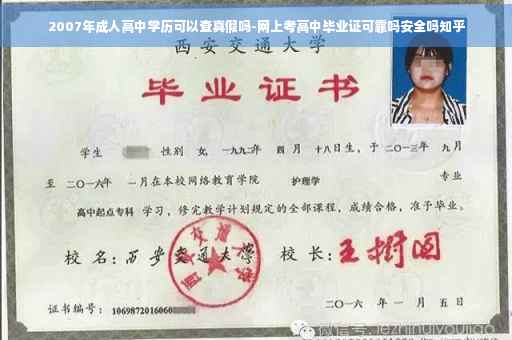 2007年成人高中学历可以查真假吗-网上考高中毕业证可靠吗安全吗知乎
西安交通大学
毕业证书
学生 性别 女, 一九九二年 四月 十八日生, 于 二〇一三年 九月
至 二〇一六年 一月在本校网络教育学院 护理学 专业
高中起点专科 学习, 修完教学计划规定的全部课程, 成绩合格, 准予毕业。
校 名: 西安交通大学 校 长: 王树国
证书编号: 1069872016060
二〇一六 年 一 月 五 日
微信号: jiezhihuiyoujiao